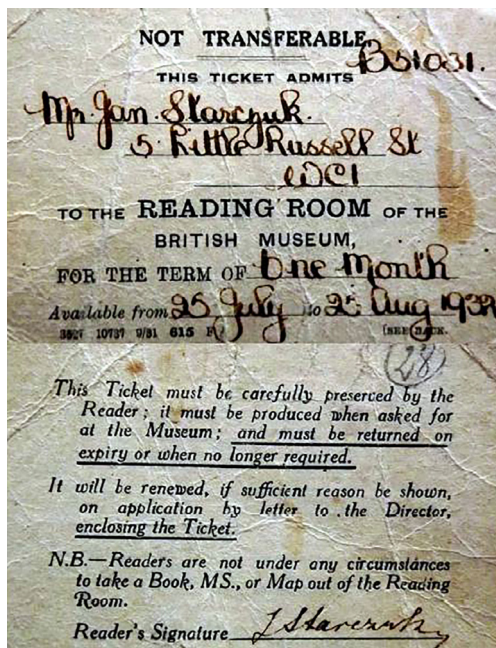 NOT TRANSFERABLE
B51031.
THIS TICKET ADMITS
Mr. Jan Starczuk.
5 Little Russell St
WC1
TO THE READING ROOM OF THE
BRITISH MUSEUM,
FOR THE TERM OF One Month
Available from 25 July to 25 Aug 1932
10737 9/31 615 [SEE BACK.
28
This Ticket must be carefully preserved by the
Reader; it must be produced when asked for
at the Museum; and must be returned on
expiry or when no longer required.
It will be renewed, if sufficient reason be shown,
on application by letter to the Director,
enclosing the Ticket.
N.B.—Readers are not under any circumstances
to take a Book, MS., or Map out of the Reading
Room.
Reader's Signature J Starczuk